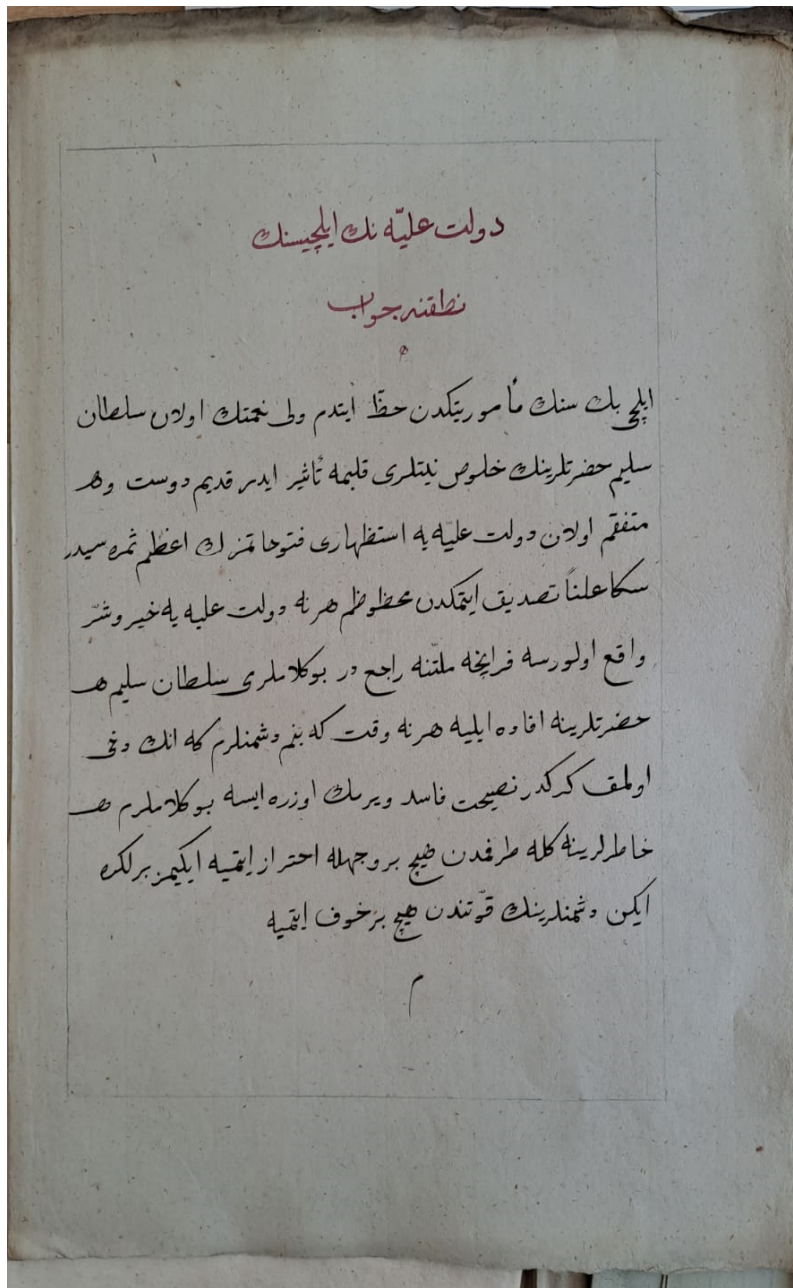 دولت عليّه نك ايلچيسنك
نطقنه جواب
ايلچى بك سنك مأموريتكدن حظّ ايتدم ولى نعمتك اولان سلطان
سليم حضرتلرينك خلوص نيتلرى قلبمه تأثير ايدر قديم دوست و هـ
متفقم اولان دولت عليّه يه استظهارى فتوحاتمزك اعظم ثمره سيدر
سكا علناً تصديق ايتمكدن محظوظم هرنه دولت عليه يه خير و شرّ
واقع اولورسه فرانچه ملّتنه راجع در بو كلاملرى سلطان سليم هـ
حضرتلرينه افاده ايليه هرنه وقت كه بنم دشمنلرم كه انك دخى
اولمق كركدر نصيحت فاسد ويرمك اوزره ايسه بو كلاملرم هـ
خاطرلرينه كله طرفمدن هيچ بر وجهله احتراز ايتميه ايكيمز برلكده
ايكن دشمنلرينك قوّتندن هيچ بر خوف ايتميه
م